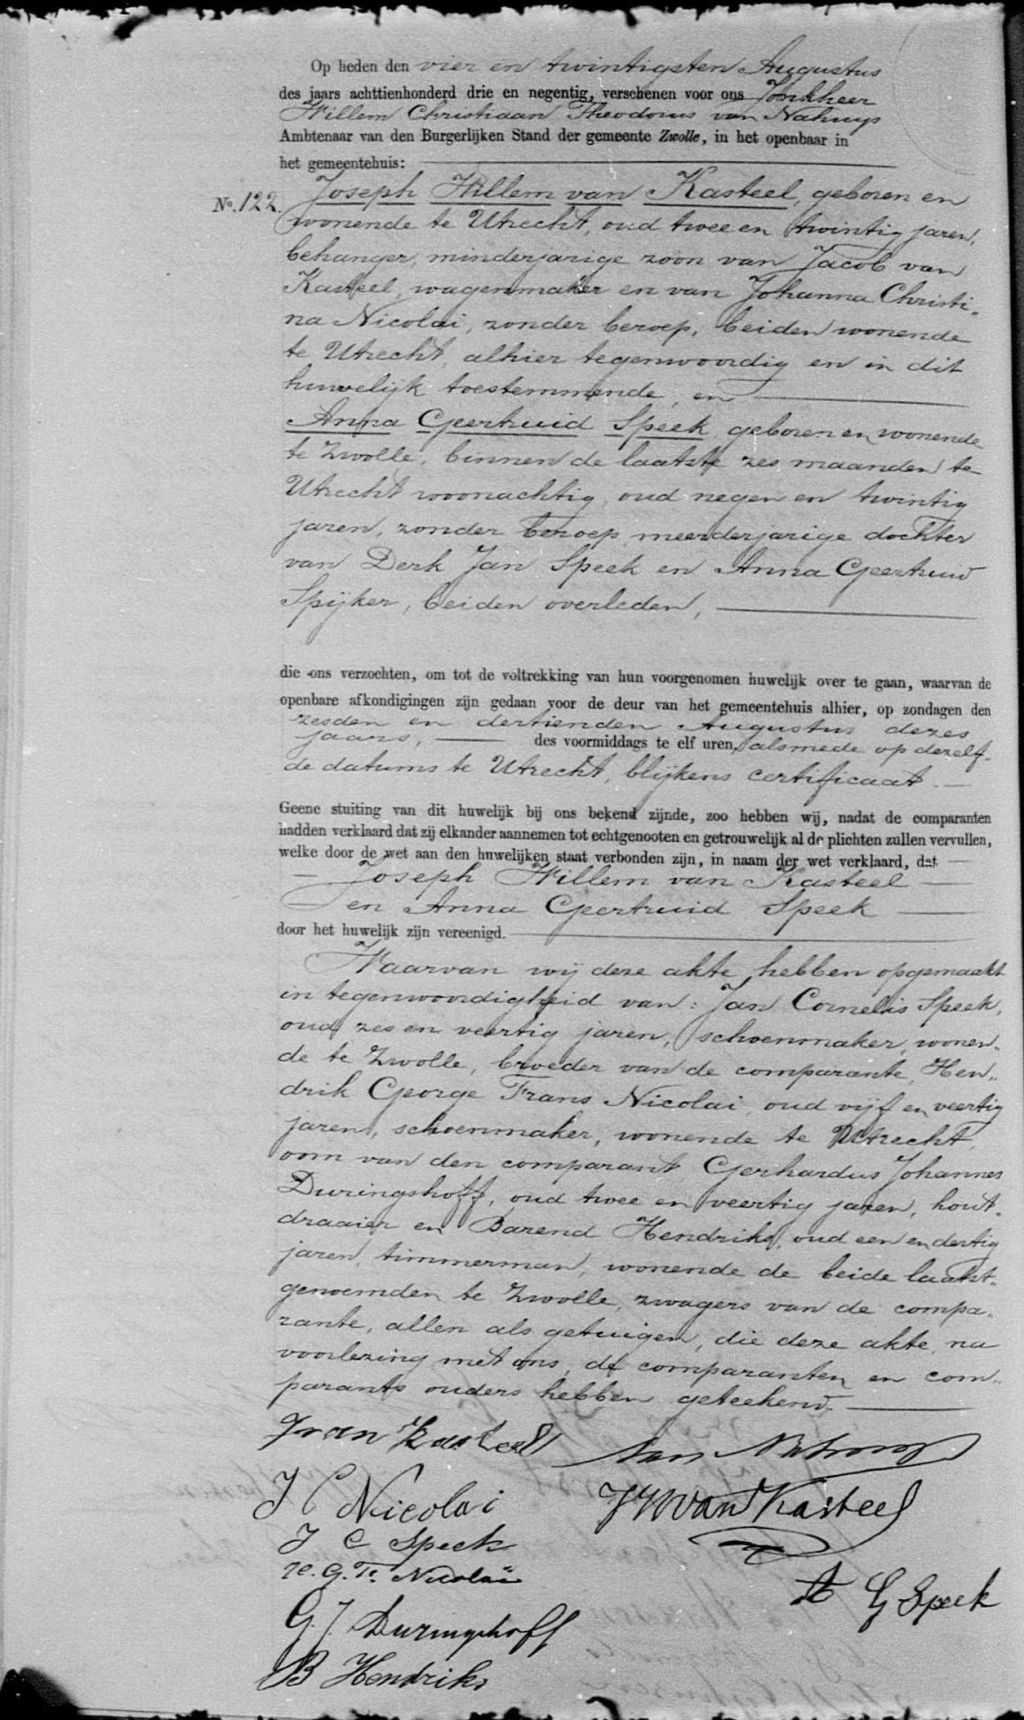 Op heden den vier en twintigsten Augustus
des jaars achttienhonderd drie en negentig, verschenen voor ons Jonkheer
Willem Christiaan Theodorus van Nahuys
Ambtenaar van den Burgerlijken Stand der gemeente Zwolle, in het openbaar in
het gemeentehuis:
No. 122. Joseph Willem van Kasteel, geboren en
wonende te Utrecht, oud twee en twintig jaren,
behanger, minderjarige zoon van Jacob van
Kasteel, wagenmaker en van Johanna Christi-
na Nicolai, zonder beroep, beiden wonende
te Utrecht, alhier tegenwoordig en in dit
huwelijk toestemmende, en
Anna Geertruid Speek, geboren en wonende
te Zwolle, binnen de laatste zes maanden te
Utrecht woonachtig, oud negen en twintig
jaren, zonder beroep, meerderjarige dochter
van Derk Jan Speek en Anna Geertruid
Spijker, beiden overleden,
die ons verzochten, om tot de voltrekking van hun voorgenomen huwelijk over te gaan, waarvan de
openbare afkondigingen zijn gedaan voor de deur van het gemeentehuis alhier, op zondagen den
zesden en dertienden Augustus dezes
jaars, des voormiddags te elf uren, alsmede op dezelf-
de datums te Utrecht, blijkens certificaat.
Geene stuiting van dit huwelijk bij ons bekend zijnde, zoo hebben wij, nadat de comparanten
hadden verklaard dat zij elkander aannemen tot echtgenooten en getrouwelijk al de plichten zullen vervullen,
welke door de wet aan den huwelijken staat verbonden zijn, in naam der wet verklaard, dat
Joseph Willem van Kasteel
en Anna Geertruid Speek
door het huwelijk zijn vereenigd.
Waarvan wij deze akte hebben opgemaakt
in tegenwoordigheid van: Jan Cornelis Speek,
oud zes en veertig jaren, schoenmaker, wonen-
de te Zwolle, broeder van de comparante, Hen-
drik George Frans Nicolai, oud vijf en veertig
jaren, schoenmaker, wonende te Utrecht,
oom van den comparant Gerhardus Johannes
Duringshoff, oud twee en veertig jaren, hout-
draaier en Barend Hendriks, oud een en dertig
jaren, timmerman, wonende de beide laatst-
genoemden te Zwolle, zwagers van de compa-
rante, allen als getuigen, die deze akte, na
voorlezing met ons, de comparanten en com-
parants ouders hebben geteekend.
J van Kasteel
van Nahuys
J C Nicolai
J W van Kasteel
J C Speek
H. G. F. Nicolai
A G Speek
G J Duringshoff
B Hendriks